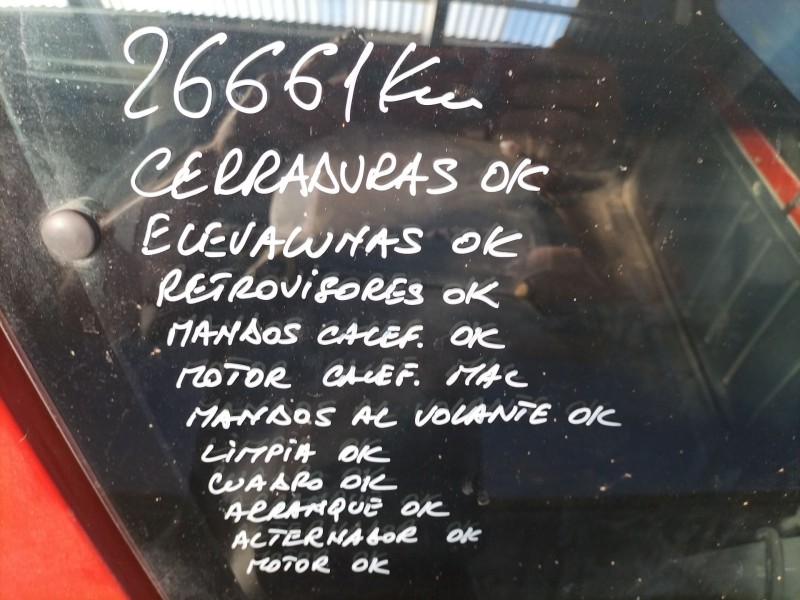 26661 Km
CERRADURAS OK
ELEVALUNAS OK
RETROVISORES OK
MANDOS CALEF. OK
MOTOR CALEF. MAL
MANDOS AL VOLANTE OK
LIMPIA OK
CUADRO OK
ARRANQUE OK
ALTERNADOR OK
MOTOR OK